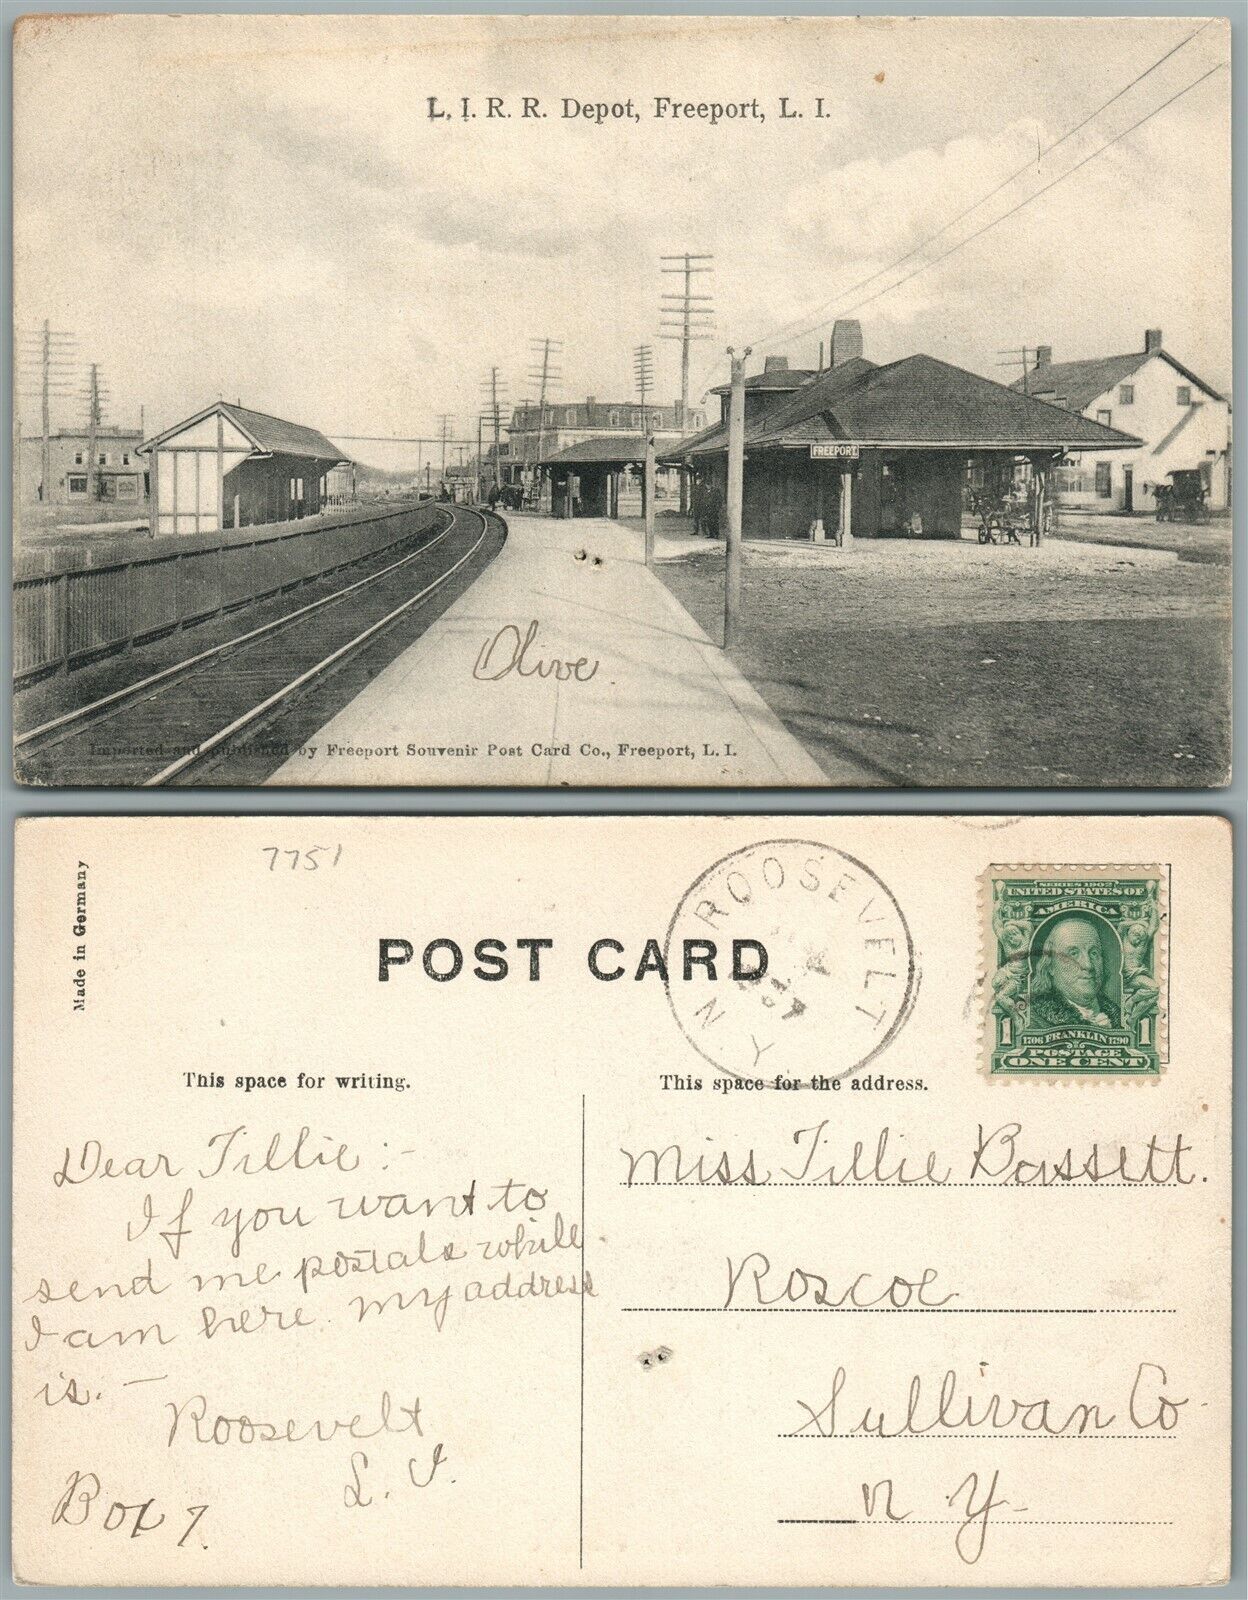 L. I. R. R. Depot, Freeport, L. I.
FREEPORT.
Olive.
Imported and published by Freeport Souvenir Post Card Co., Freeport, L. I.
7751
Made in Germany
POST CARD
ROOSEVELT
N Y
SERIES 1902
UNITED STATES OF
AMERICA
1 1706 FRANKLIN 1790 1
POSTAGE
ONE CENT
This space for writing.
This space for the address.
Dear Tillie:-
If you want to
send me postals while
I am here my address
is.—
Roosevelt
L. I.
Box 7.
Miss Tillie Bassett.
Roscoe
Sullivan Co
N Y-